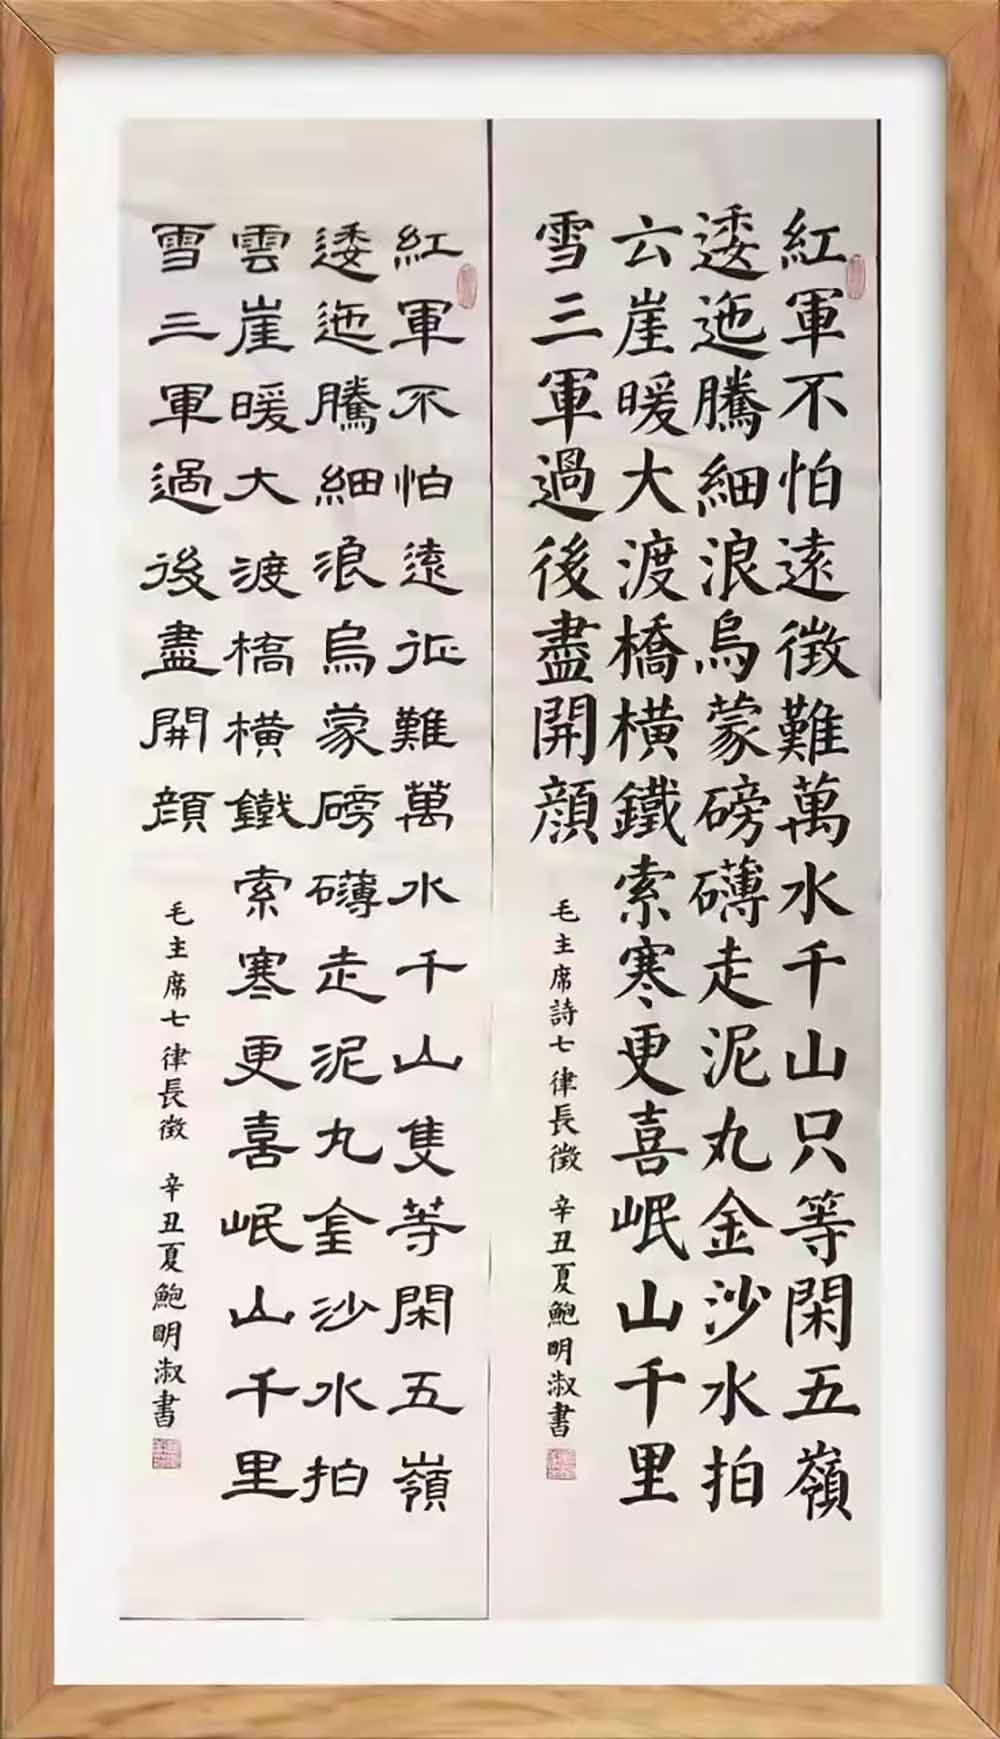 紅軍不怕遠徵難萬水千山只等閑五嶺
逶迤騰細浪烏蒙磅礴走泥丸金沙水拍
云崖暖大渡橋橫鐵索寒更喜岷山千里
雪三軍過後盡開顏
毛主席詩七律長徵 辛丑夏鮑明淑書
紅軍不怕遠征難萬水千山隻等閑五嶺
逶迤騰細浪烏蒙磅礴走泥丸金沙水拍
雲崖暖大渡橋橫鐵索寒更喜岷山千里
雪三軍過後盡開顏
毛主席七律長徵 辛丑夏鮑明淑書